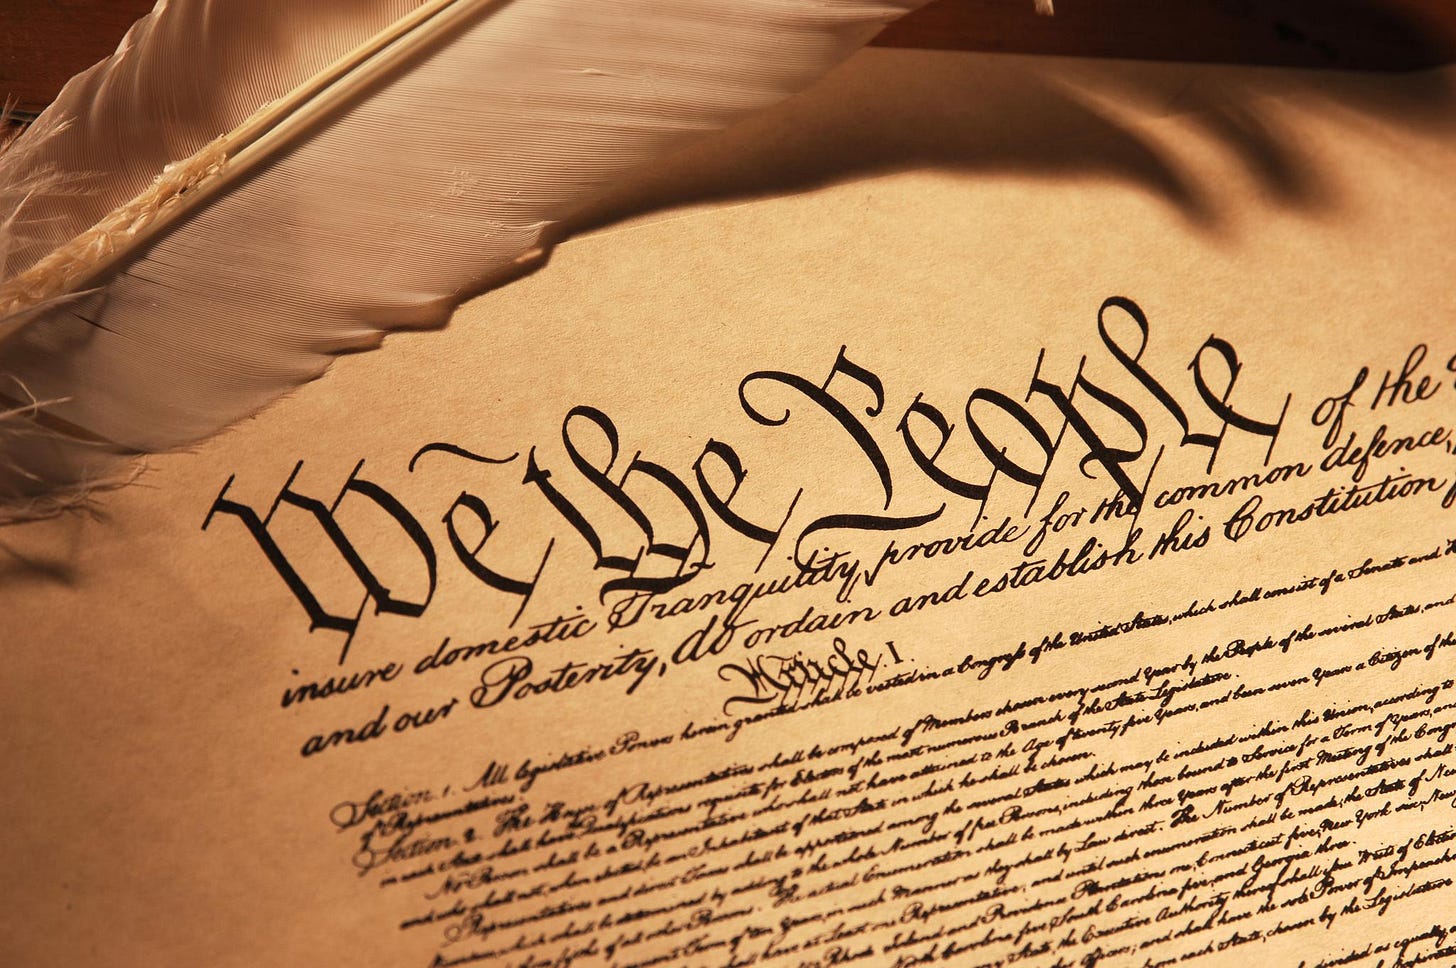 We the People of the
insure domestic Tranquility, provide for the common defence,
and our Posterity, do ordain and establish this Constitution
Article. I.
Section. 1. All legislative Powers herein granted shall be vested in a Congress of the United States, which shall consist of a Senate and
of Representatives.
Section. 2. The House of Representatives shall be composed of Members chosen every second Year by the People of the several States, and
in each State shall have Qualifications requisite for Electors of the most numerous Branch of the State Legislature.
No Person shall be a Representative who shall not have attained to the Age of twenty five Years, and been seven Years a Citizen of the
and who shall not, when elected, be an Inhabitant of that State in which he shall be chosen.
Representatives and direct Taxes shall be apportioned among the several States which may be included within this Union, according to
which shall be determined by adding to the whole Number of free Persons, including those bound to Service for a Term of Years, and
fifths of all other Persons. The actual Enumeration shall be made within three Years after the first Meeting of the
Term of ten Years, in such Manner as they shall by Law direct. The Number of Representatives shall
shall have at Least one Representative; and until such enumeration shall be made, the State of New
Rhode Island and Providence Plantations one, Connecticut five, New York six, New
North Carolina five, South Carolina five, and Georgia three.
State, the Executive Authority thereof shall issue Writs of
other Officers; and shall have the sole Power of
from each State, chosen by the Legislature
divided as equally